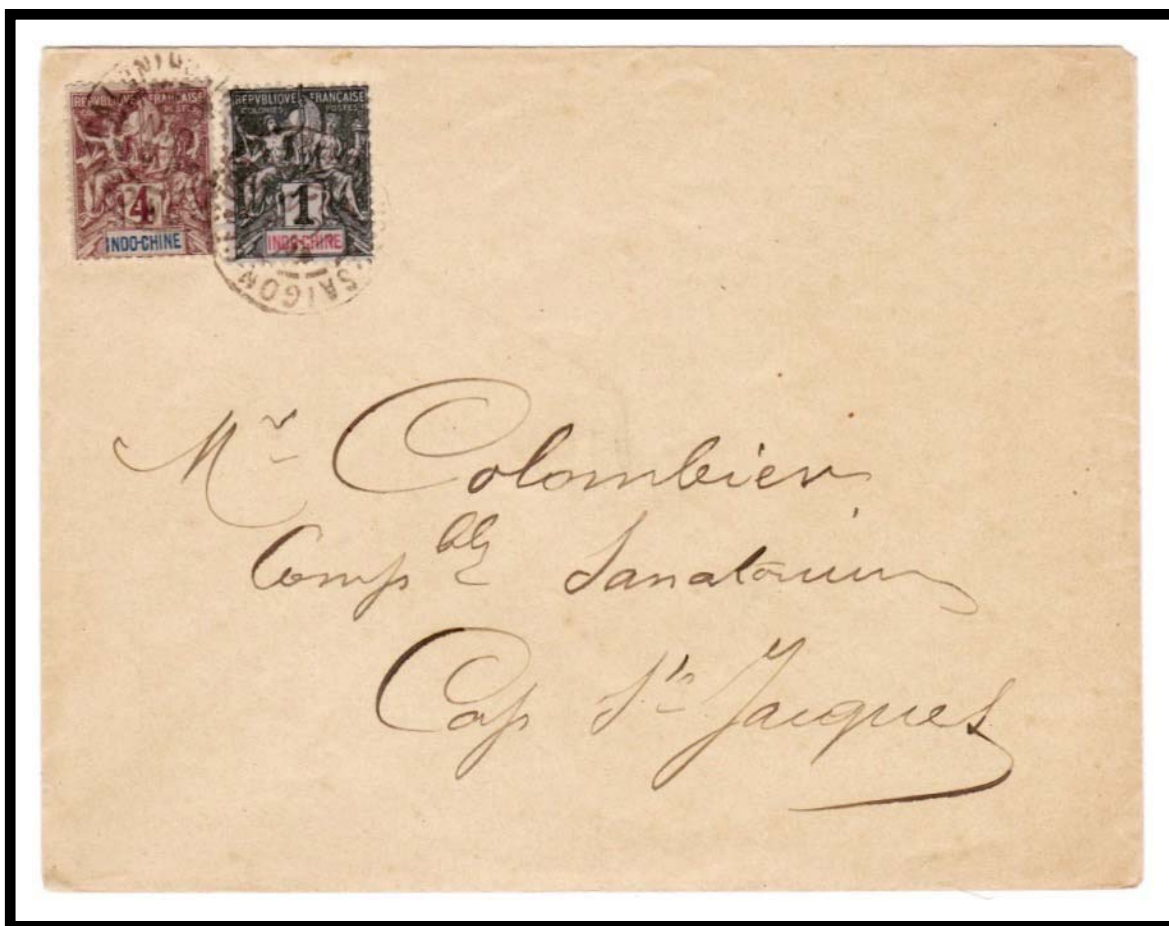 REPVBLIQVE FRANÇAISE
4
INDO-CHINE
REPVBLIQVE FRANÇAISE
COLONIES POSTES
1
INDO-CHINE
SAIGON
Mr Colombier
Compble Sanatorium
Cap St Jacques